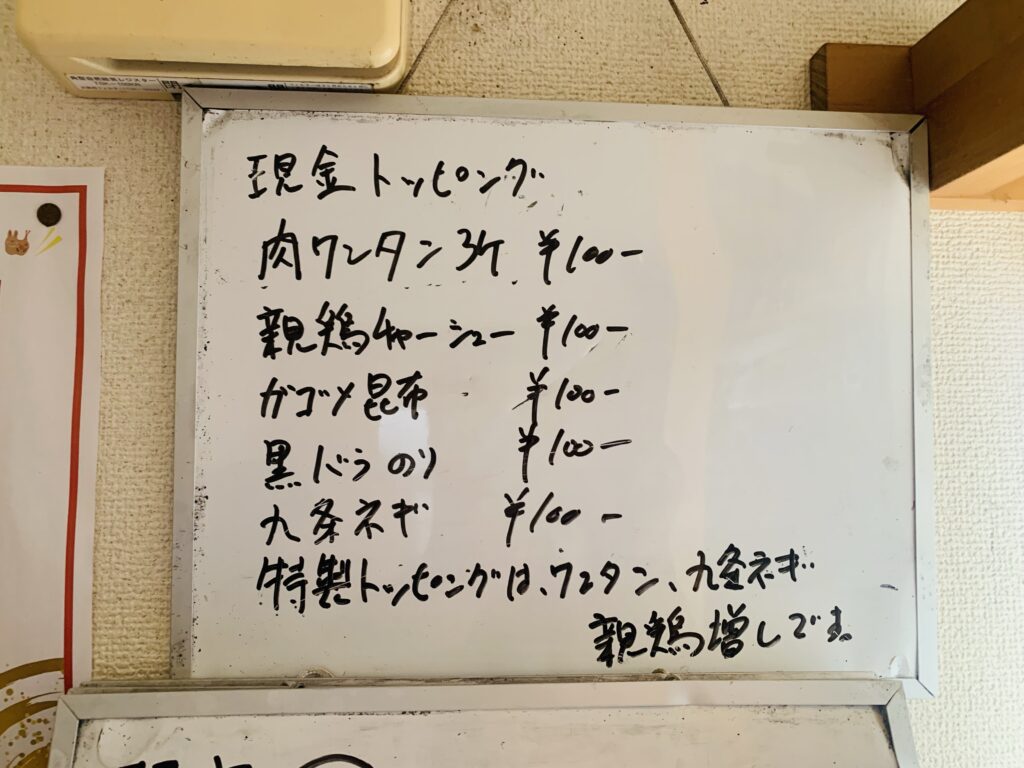 現金トッピング
肉ワンタン3ケ ¥100-
親鶏チャーシュー ¥100-
ガゴメ昆布 ¥100-
黒バラのり ¥100-
九条ネギ ¥100-
特製トッピングは、ワンタン、九条ネギ
親鶏増しです。